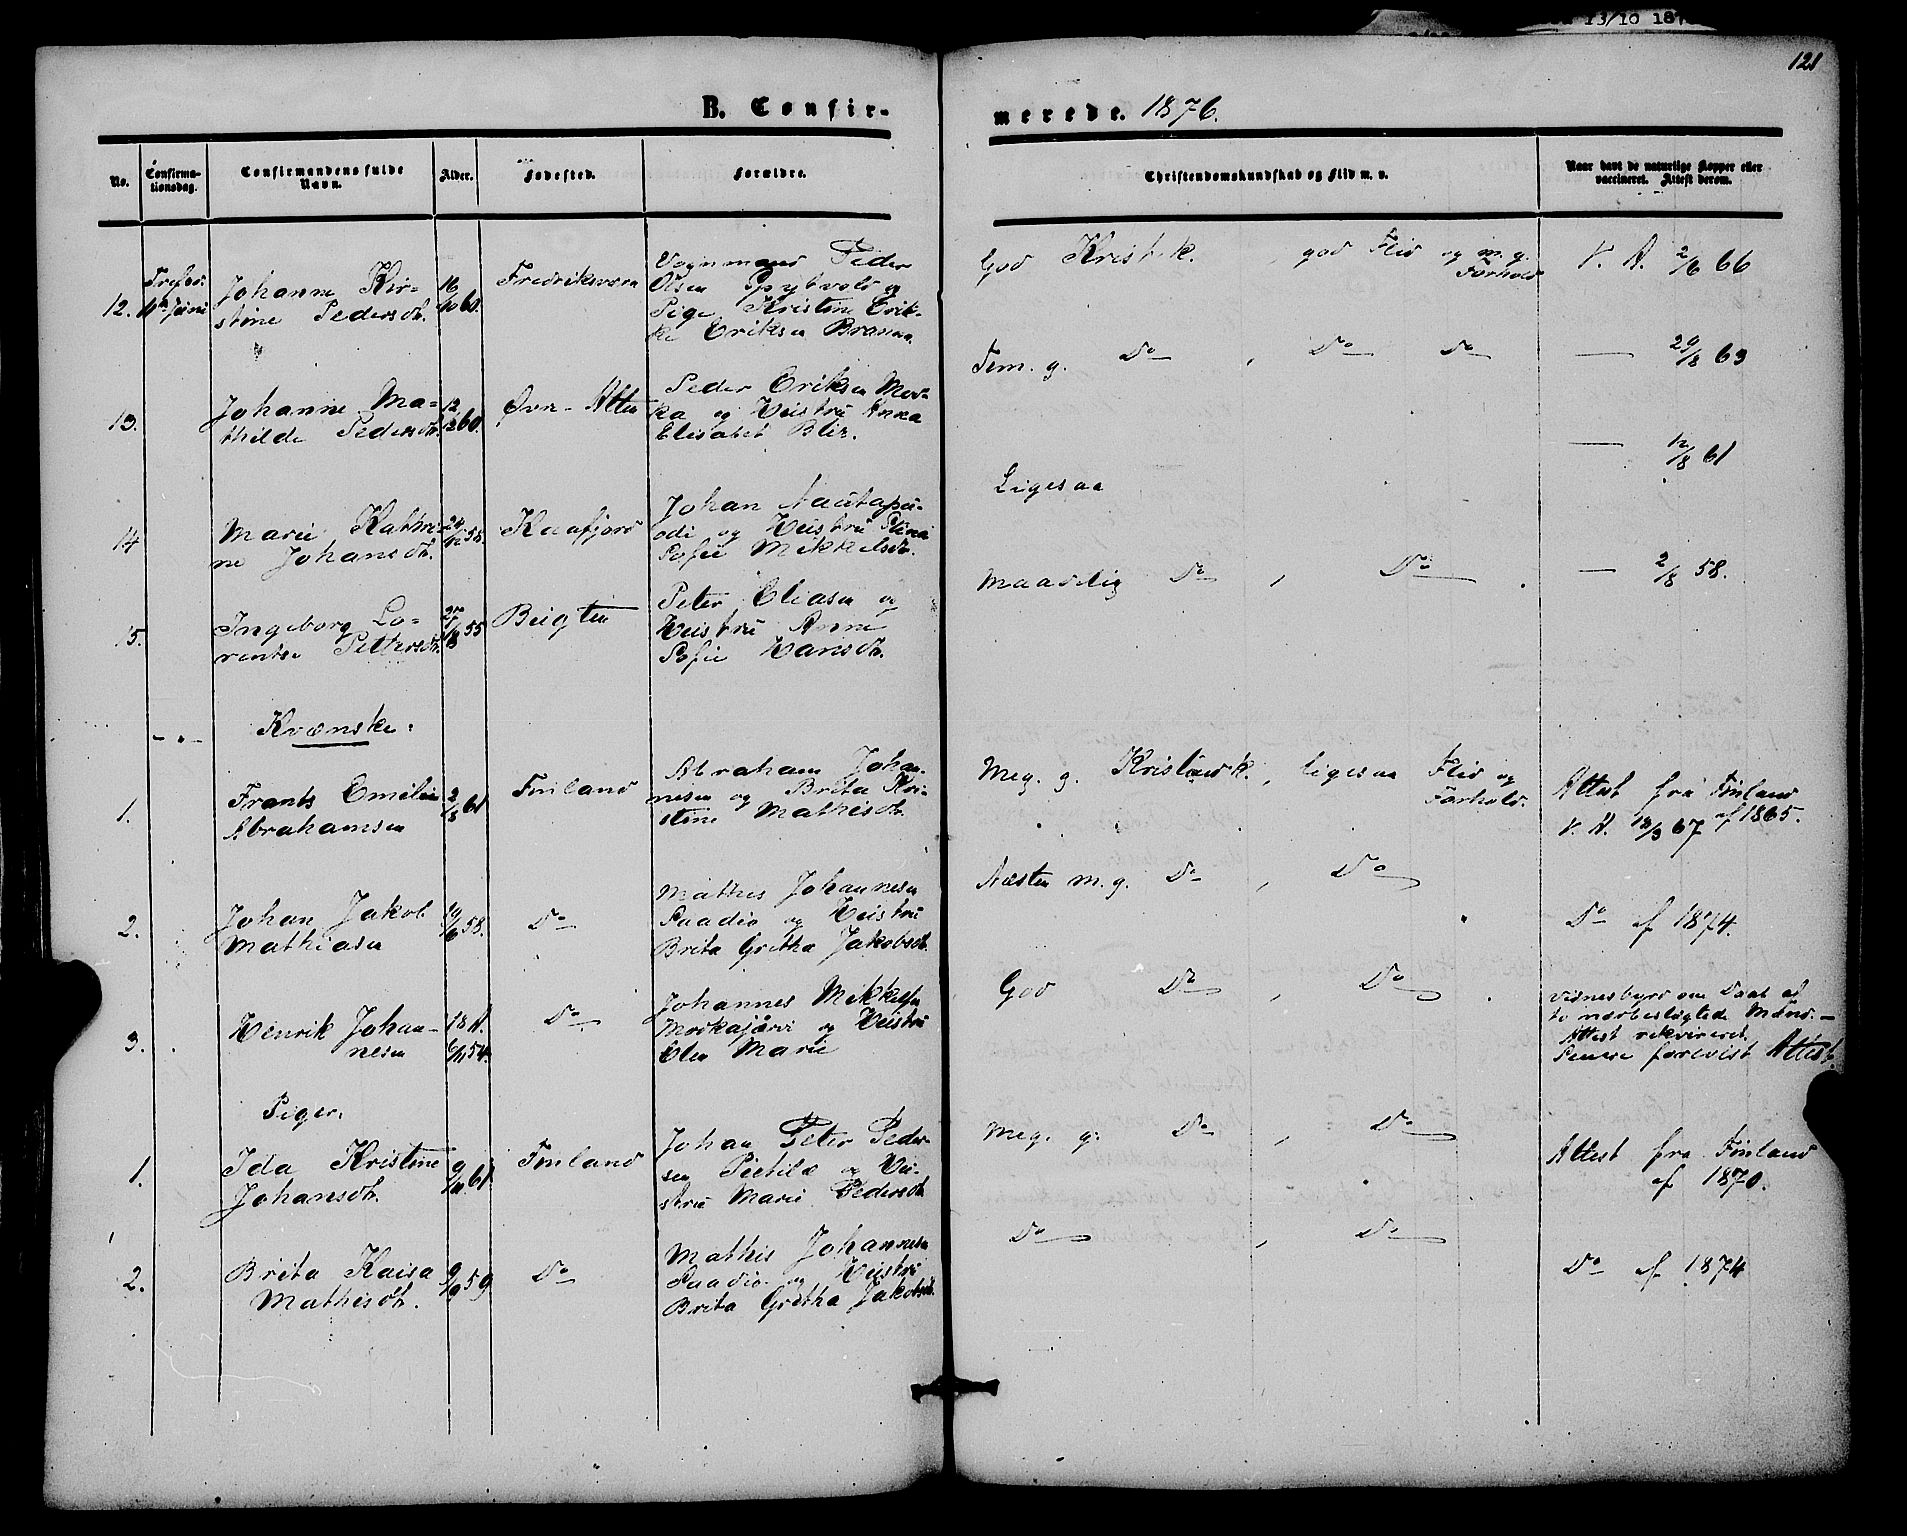 13/10 18
121
B. Confir-
merede. 1876.
No.
Confirma-
tionsdag.
Confirmandens fulde
Navn.
Alder.
Fødested.
Forældre.
Christendomskundskab og Flid m. v.
Naar havt de naturlige Kopper eller
vaccineret. Attest derom.
12.
11te Juni
Johanne Kir-
stine Pedersdt.
16/10 60.
Peder
Olsen og
Pige Kristine Erik-
Eriksen
God Kristk. , god Flid og m. g.
Forhold
V. A. 2/6 66
13.
Johanne Ma-
thilde Pedersdt.
12/12 60.
Øvre-Alten
Peder Eriksen
og Heistru Anna
Elisabet
Tem. g. Do , Do Do
— 29/8 63
14
Marie Kathri-
ne Johansdt.
24/12 58.
Kaafjord
Johan
og Heistru
Sofie Mikkelsdt.
Ligesaa
— 12/8 61
15.
Ingeborg Lo-
rentse Pettersdt.
27/8 55
Peter Eliasen og
Heistru Anne
Sofie Hansdt.
Maadelig Do , Do .
— 2/8 58.
- " -
Kvænske.
1.
Frants Emilie
Abrahamsen
2/3 61
Finland
Abraham Johan-
nesen og Brita Kri-
stine Mathisdt.
Meg. g. Kristendk., ligesaa Flid og
Forhold.
Attest fra Finland
af 1865.
V. A. 18/9 67
2.
Johan Jakob
Mathiasen
19/6 58.
Do
Mathis Johannesen
Paadio og Heistru
Brita Gretha Jakobsdt.
Næsten m. g. Do , Do
Do af 1874.
3.
Henrik Johan-
nesen
18 A.
6/11 54.
Do
Johannes Mikkelsen
og Heistru
Elen Marie
God Do , Do .
Vidnesbyrd om Daab af
to nærbeslægtede Mænd.-
Attest rekvireret.
Senere forevist Attest.
Piger.
1.
Ida Kristine
Johansdt.
9/11 61.
Finland
Johan Peter Peder-
sen Pietilæ og Hei-
stru Marie Pedersdt.
Meg. g. Do , Do
Attest fra Finland
af 1870.
2.
Brita Kaisa
Mathisdt.
9/9 59
Do
Mathis Johannesen
Paadio og Heistru
Brita Gretha Jakobsdt.
Do , Do
Do af 1874